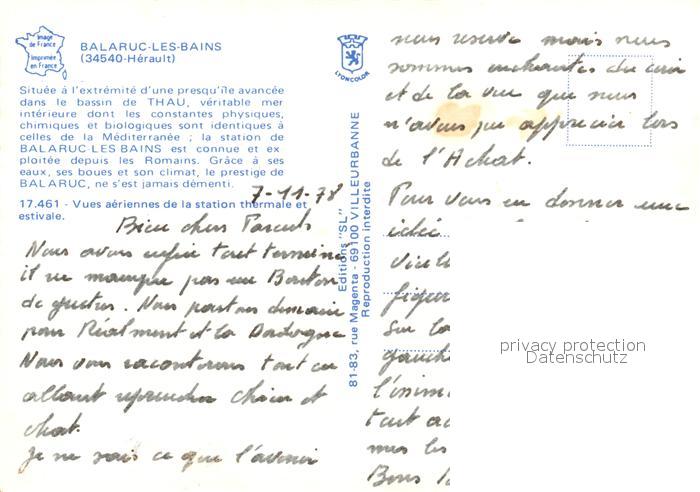 Image
de France
Imprimée
en France
BALARUC-LES-BAINS
(34540-Hérault)
Située à l'extrémité d'une presqu'île avancée
dans le bassin de THAU, véritable mer
intérieure dont les constantes physiques,
chimiques et biologiques sont identiques à
celles de la Méditerranée ; la station de
BALARUC-LES BAINS est connue et ex-
ploitée depuis les Romains. Grâce à ses
eaux, ses boues et son climat, le prestige de
BALARUC, ne s'est jamais démenti.
17.461 - Vues aériennes de la station thermale et
estivale.
7-11-78
Bien chers Parents
Nous avons enfin tout terminé
il ne manque pas un Bouton
de guêtres. Nous partons demain
pour Réalmont et la Dordogne
Nous vous raconterons tout en
allant reprendre chien et
chat.
Je ne sais ce que l'avenir
LYONCOLOR
Editions "SL"
81-83, rue Magenta - 69100 VILLEURBANNE
Reproduction interdite
nous reserve mais nous
sommes enchantés du coin
et de la vue que nous
n'avons pu apprecier lors
de l'Achat.
Pour vous en donner une
idée
figur
Sur la
gauche
tout au
mes les
Bons
privacy protection
Datenschutz